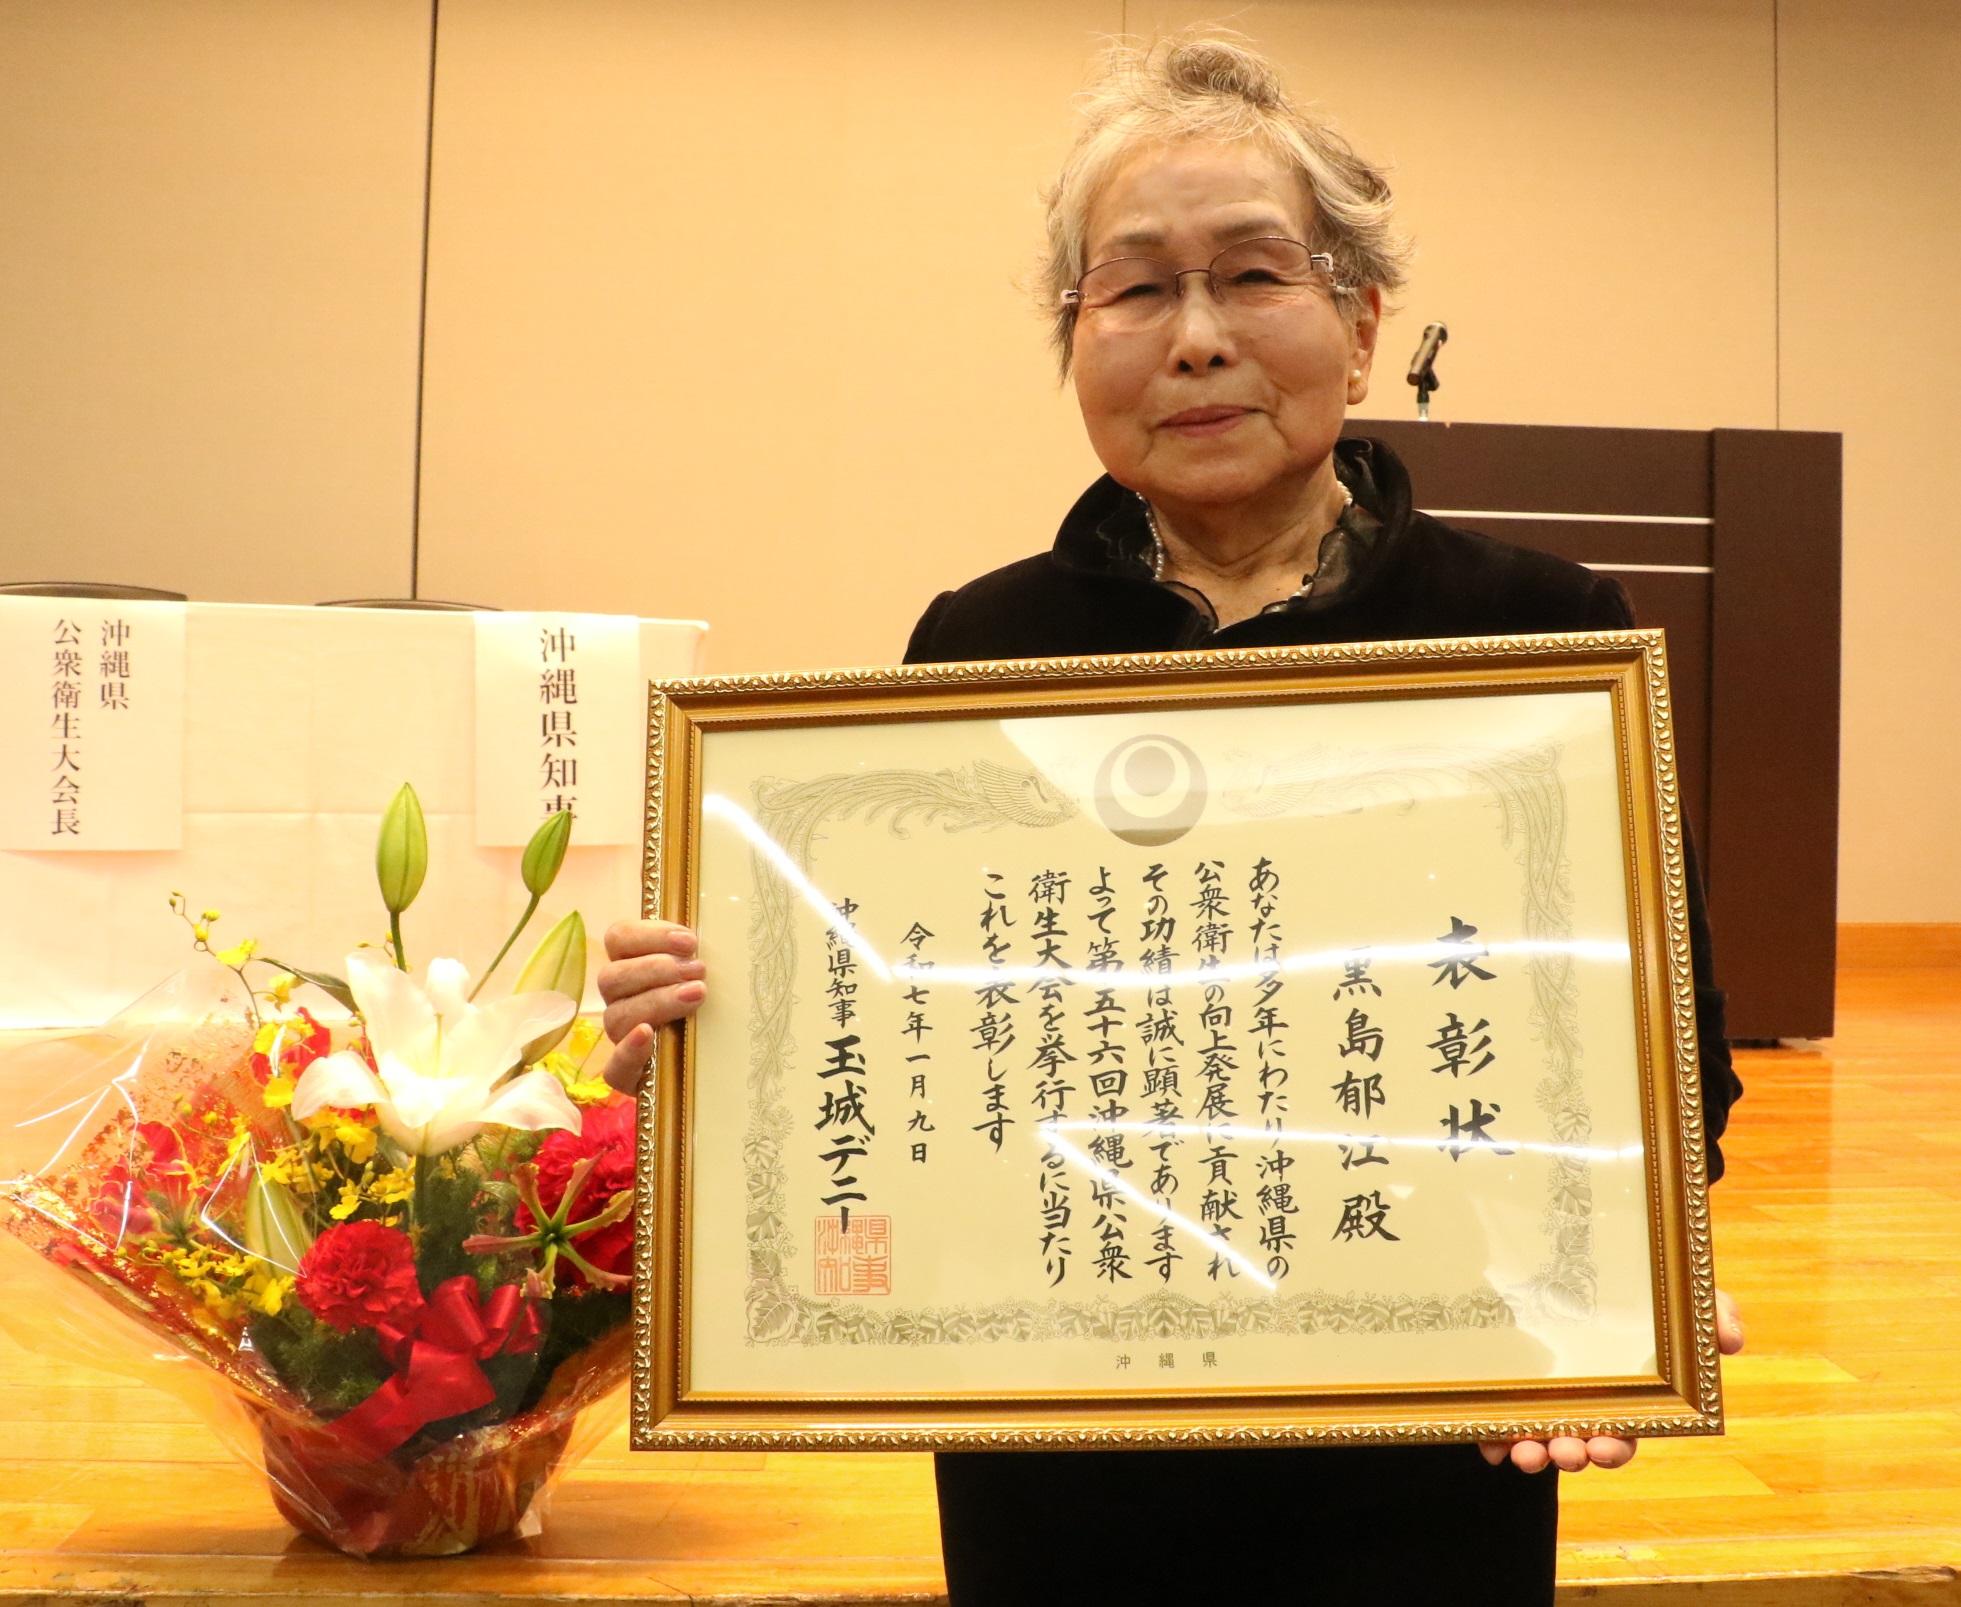 表彰状
黒島郁江殿
あなたは多年にわたり沖縄県の
公衆衛生の向上発展に貢献され
その功績は誠に顕著であります
よって第五十六回沖縄県公衆
衛生大会を挙行するに当たり
これを表彰します
令和七年一月九日
沖縄県知事 玉城デニー
沖縄県知事
沖縄県
沖縄県知事
沖縄県
公衆衛生大会長